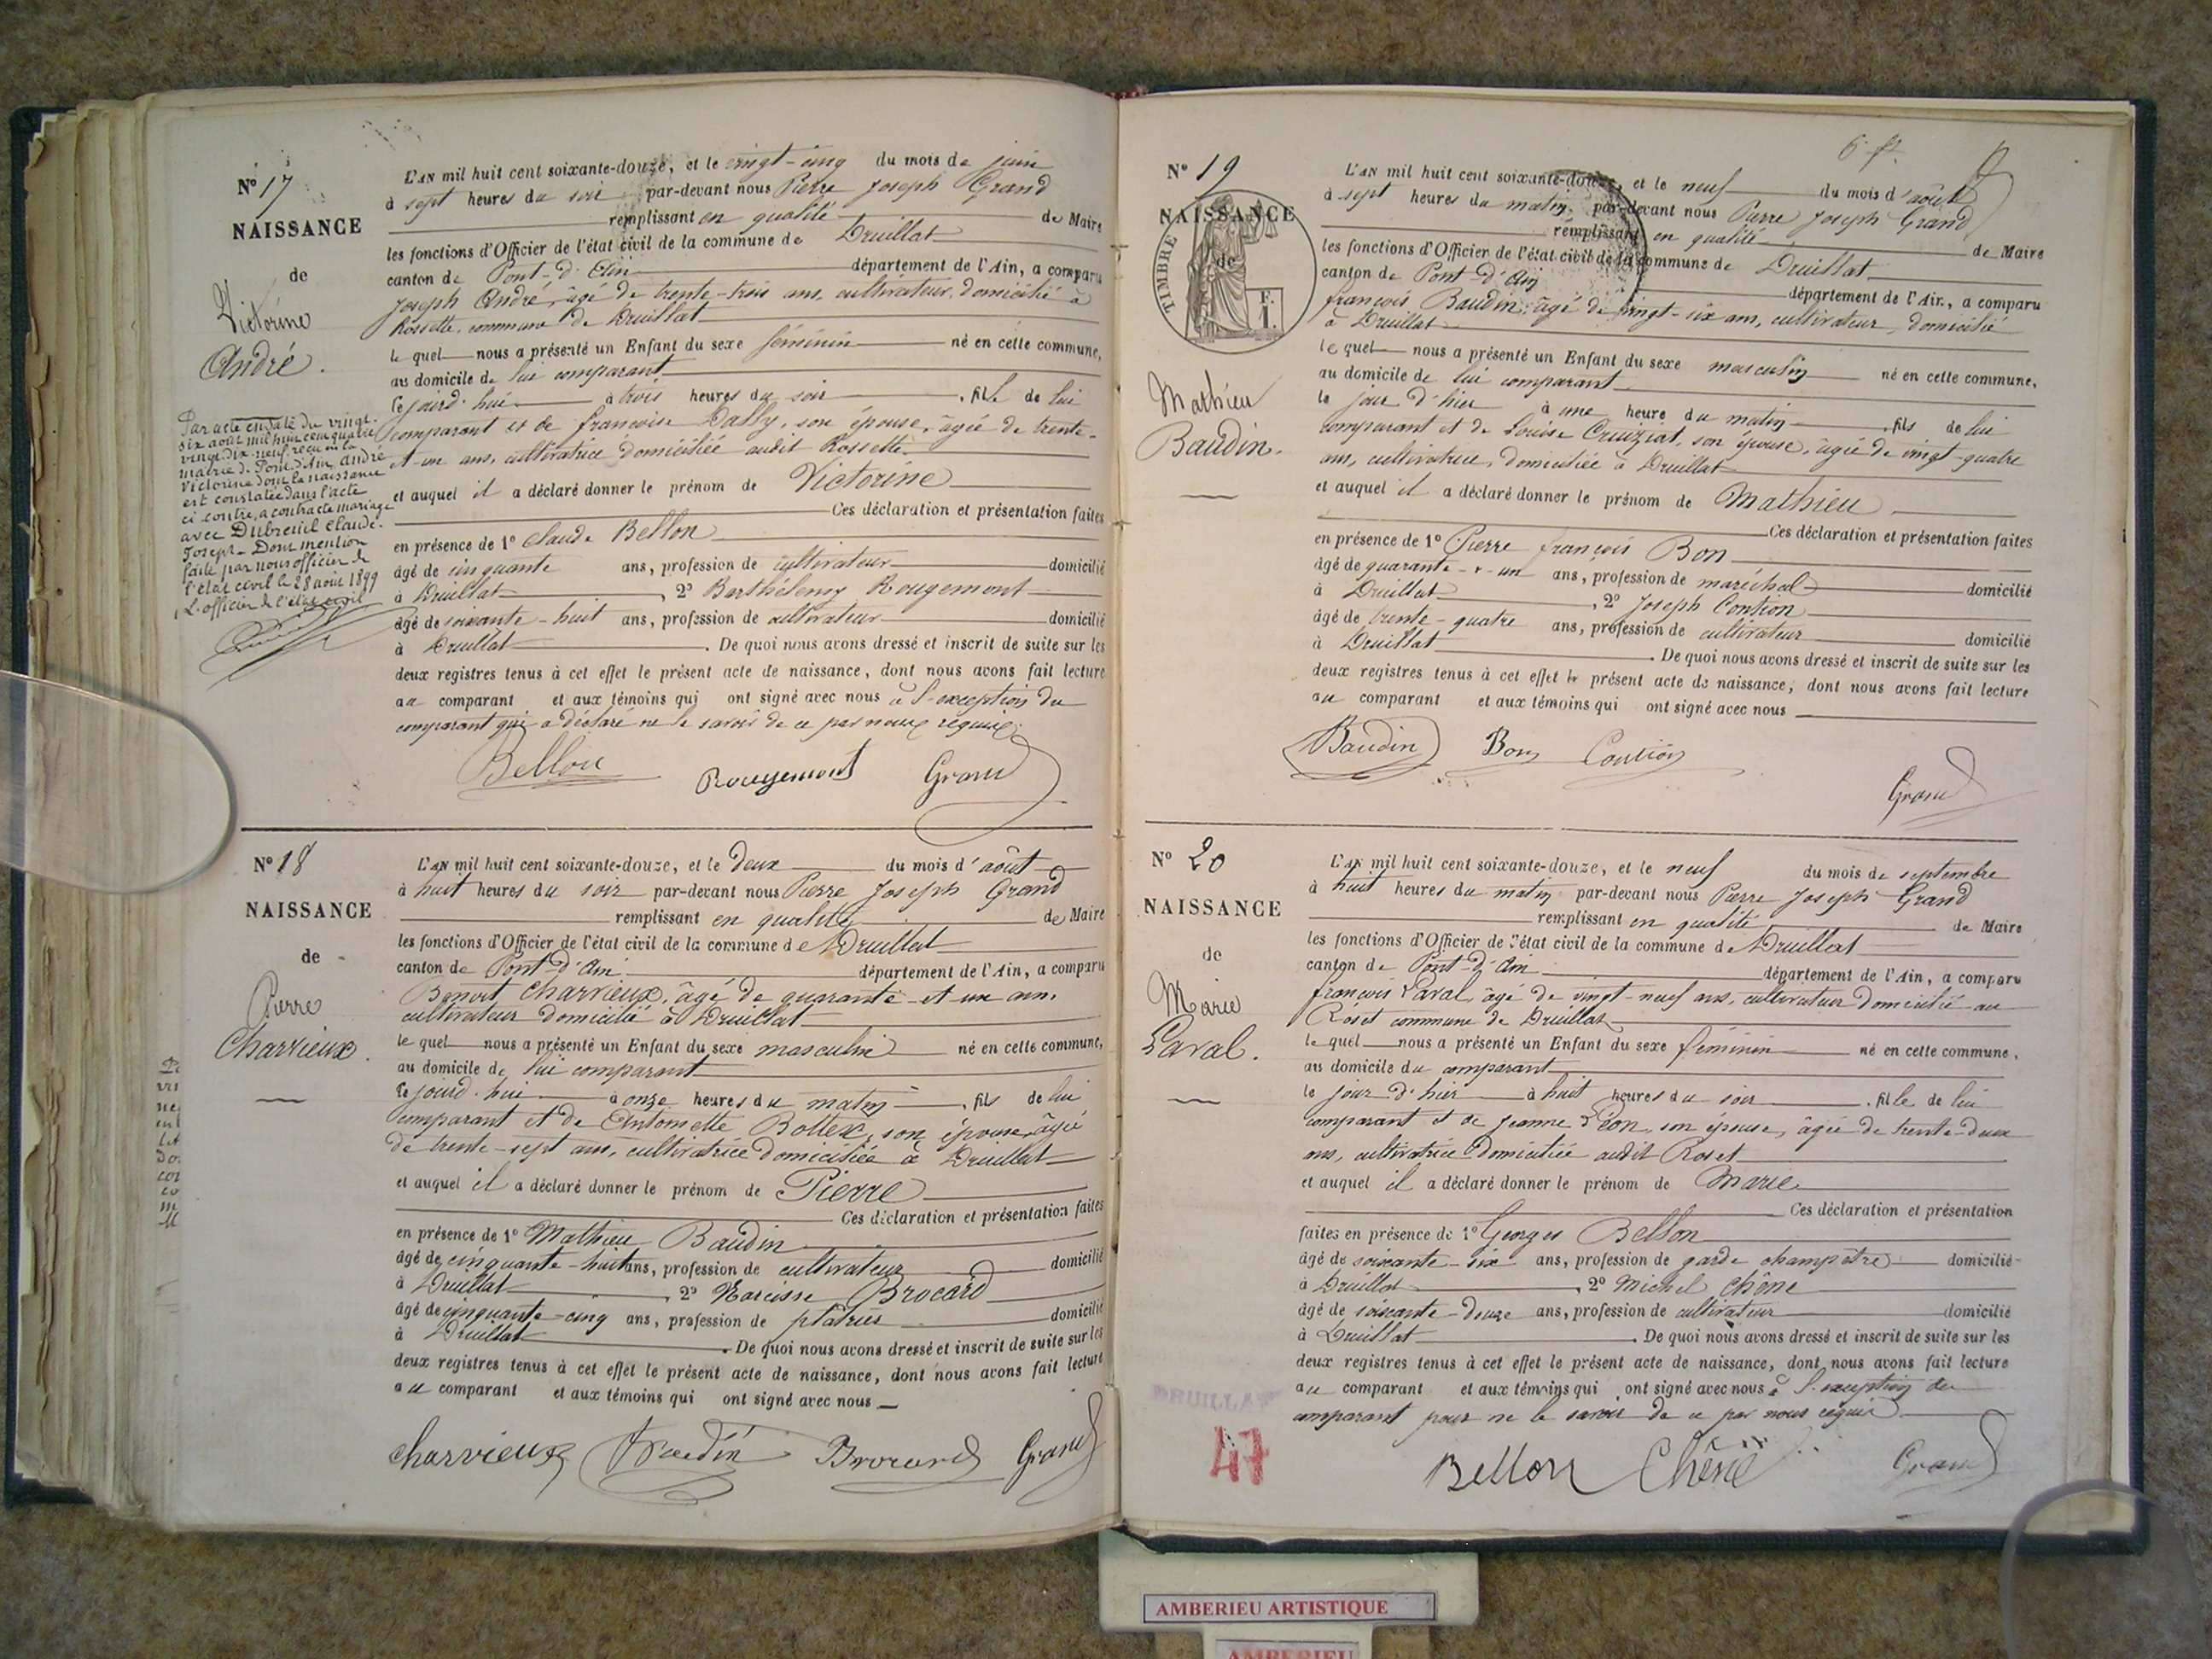 N° 17
NAISSANCE
de
Victorine
André.
Par acte en date du vingt-
six août mil huit cent quatre
vingt dix-neuf reçu à la
mairie de Pont d'Ain, André
Victorine dont la naissance
est constatée dans l'acte
ci contre, a contracté mariage
avec Dubreuil Claude-
Joseph - Dont mention
faite par nous officier de
l'état civil le 28 août 1899
L'officier de l'état civil
L'AN mil huit cent soixante-douze, et le vingt-cinq du mois de juin
à sept heures du soir par-devant nous Pierre Joseph Grand
remplissant en qualité de Maire
les fonctions d'Officier de l'état civil de la commune de Druillat
canton de Pont-d'Ain département de l'Ain, a comparu
Joseph André, âgé de trente-trois ans, cultivateur, domicilié à
Rossette, commune de Druillat
le quel nous a présenté un Enfant du sexe féminin né en cette commune,
au domicile de lui comparant
ce jourd'hui à trois heures du soir, fille de lui
comparant et de françoise Dally, son épouse, âgée de trente-
et-un ans, cultivatrice domiciliée audit Rossette.
et auquel il a déclaré donner le prénom de Victorine
Ces déclaration et présentation faites
en présence de 1° Claude Bellon
âgé de cinquante ans, profession de cultivateur domicilié
à Druillat, 2° Barthélemy Rougemont
âgé de soixante-huit ans, profession de cultivateur domicilié
à Druillat. De quoi nous avons dressé et inscrit de suite sur les
deux registres tenus à cet effet le présent acte de naissance, dont nous avons fait lecture
au comparant et aux témoins qui ont signé avec nous à l'exception du
comparant qui a déclaré ne le savoir de ce par nous requis.
Bellon Rougemont Grand
N° 18
NAISSANCE
de
Pierre
Charvieux.
L'AN mil huit cent soixante-douze, et le deux du mois d'août
à huit heures du soir par-devant nous Pierre Joseph Grand
remplissant en qualité de Maire
les fonctions d'Officier de l'état civil de la commune de Druillat
canton de Pont-d'Ain département de l'Ain, a comparu
Benoit Charvieux, âgé de quarante-et un ans,
cultivateur domicilié à Druillat
le quel nous a présenté un Enfant du sexe masculin né en cette commune,
au domicile de lui comparant
ce jourd'hui à onze heures du matin, fils de lui
comparant et de Antoinette Bottex, son épouse, âgée
de trente-sept ans, cultivatrice domiciliée à Druillat
et auquel il a déclaré donner le prénom de Pierre
Ces déclaration et présentation faites
en présence de 1° Mathieu Baudin
âgé de cinquante-huit ans, profession de cultivateur domicilié
à Druillat, 2° Narcisse Brocard
âgé de cinquante-cinq ans, profession de plâtrier domicilié
à Druillat. De quoi nous avons dressé et inscrit de suite sur les
deux registres tenus à cet effet le présent acte de naissance, dont nous avons fait lecture
au comparant et aux témoins qui ont signé avec nous
charvieux Baudin Brocard Grand
N° 19
NAISSANCE
de
TIMBRE
F.
I.
Mathieu
Baudin.
L'AN mil huit cent soixante-douze, et le neuf du mois d'août
à sept heures du matin par-devant nous Pierre Joseph Grand
remplissant en qualité de Maire
les fonctions d'Officier de l'état civil de la commune de Druillat
canton de Pont-d'Ain département de l'Ain, a comparu
françois Baudin, âgé de vingt-six ans, cultivateur, domicilié
à Druillat
le quel nous a présenté un Enfant du sexe masculin né en cette commune,
au domicile de lui comparant
le jour d'hier à une heure du matin, fils de lui
comparant et de Louise Cruiziat, son épouse, âgée de vingt-quatre
ans, cultivatrice, domiciliée à Druillat
et auquel il a déclaré donner le prénom de Mathieu
Ces déclaration et présentation faites
en présence de 1° Pierre françois Bon
âgé de quarante-et-un ans, profession de maréchal domicilié
à Druillat, 2° Joseph Contion
âgé de trente-quatre ans, profession de cultivateur domicilié
à Druillat. De quoi nous avons dressé et inscrit de suite sur les
deux registres tenus à cet effet le présent acte de naissance, dont nous avons fait lecture
au comparant et aux témoins qui ont signé avec nous
Baudin Bon Contion
Grand
N° 20
NAISSANCE
de
Marie
Laval.
L'AN mil huit cent soixante-douze, et le neuf du mois de septembre
à huit heures du matin par-devant nous Pierre Joseph Grand
remplissant en qualité de Maire
les fonctions d'Officier de l'état civil de la commune de Druillat
canton de Pont-d'Ain département de l'Ain, a comparu
françois Laval, âgé de vingt-neuf ans, cultivateur domicilié au
Roset commune de Druillat
le quel nous a présenté un Enfant du sexe féminin né en cette commune,
au domicile du comparant
le jour d'hier à huit heures du soir, fille de lui
comparant et de Jeanne Péon, son épouse, âgée de trente-deux
ans, cultivatrice domiciliée audit Roset
et auquel il a déclaré donner le prénom de Marie
Ces déclaration et présentation
faites en présence de 1° Georges Bellon
âgé de soixante-six ans, profession de garde champêtre domicilié
à Druillat, 2° Michel Chêne
âgé de soixante-douze ans, profession de cultivateur domicilié
à Druillat. De quoi nous avons dressé et inscrit de suite sur les
deux registres tenus à cet effet le présent acte de naissance, dont nous avons fait lecture
au comparant et aux témoins qui ont signé avec nous à l'exception du
comparant pour ne le savoir de ce par nous requis
Bellon Chêne Grand
DRUILLAT
47
AMBERIEU ARTISTIQUE
AMBERIEU